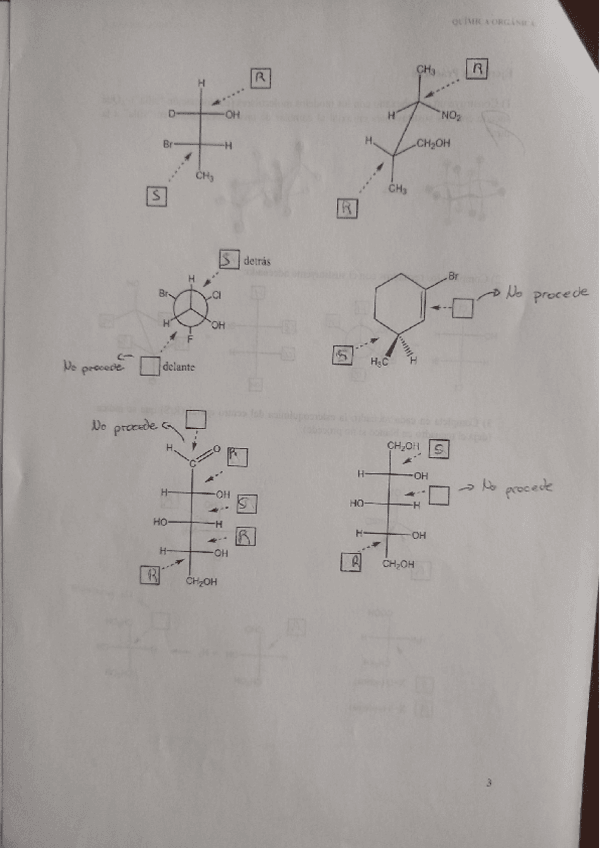 QUÍMICA ORGÁNICA
H
R
D
OH
Br
H
CH3
S
CH3
R
H
NO2
H
CH2OH
CH3
R
S detrás
H
Br
Cl
H
OH
F
No procede
delante
Br
No procede
S
H3C
H
No procede
H
O
C
R
H
OH
S
HO
H
R
H
OH
R
CH2OH
CH2OH
S
H
OH
No procede
HO
H
H
OH
R
CH2OH
3